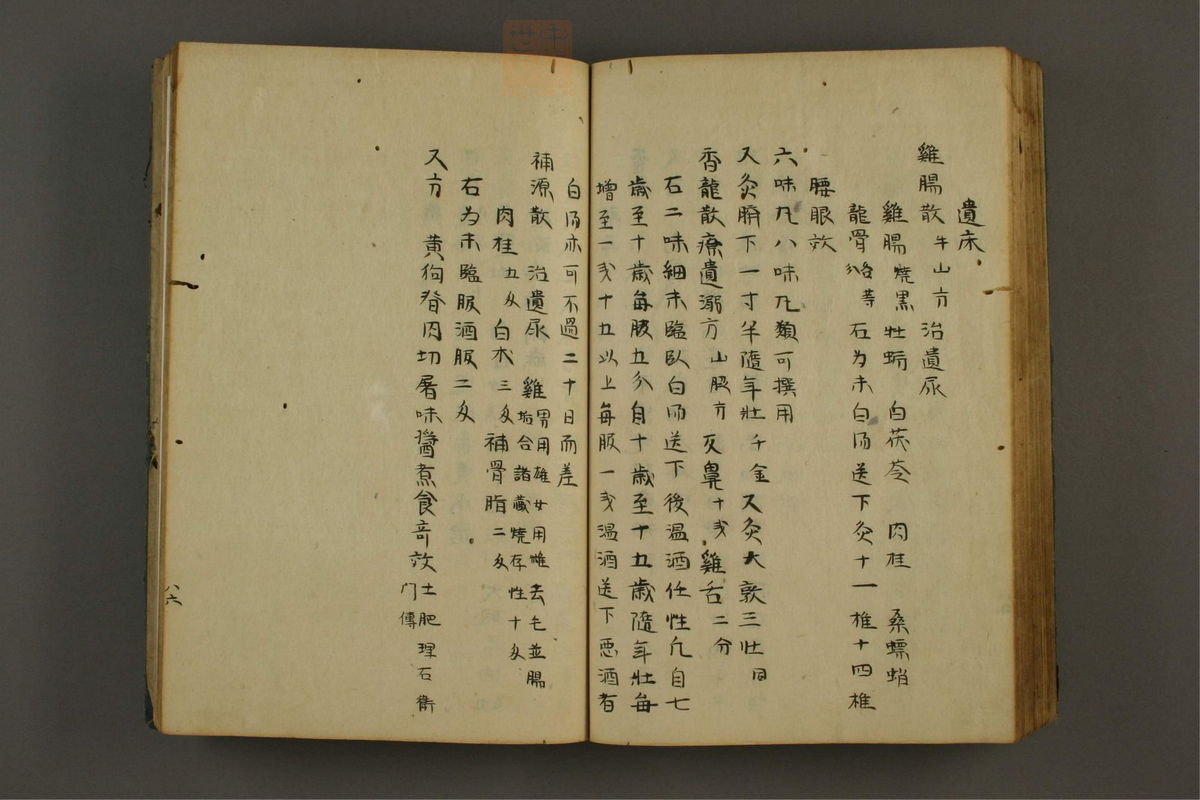 遺床
雞腸散 牛山方 治遺尿
雞腸燒黒 牡蛎 白茯苓 肉桂 桑螵蛸
龍骨 各等分 右为末白湯送下灸十一椎十四椎
腰眼效
六味九八味九類可撰用
又灸臍下一寸半隨年壮 千金 又灸大敦三壮 同
香龍散療遺溺方 山脇方 反鼻十戔 雞舌二分
右二味細末臨臥白湯送下後温酒任性凢自七
歳至十歳每服五分自十歳至十五歳隨年壮每
增至一戔十五以上每服一戔温酒送下悪酒者
白湯亦可不過二十日而差
補源散 治遺尿 雞 男用雄女用雌去毛並腸
垢合諸藏燒存性十匁
肉桂五匁 白朮三匁 補骨脂二匁
右为末臨服酒服二匁
又方 黄狗脊肉切屠味醬煮食奇效 土肥理石衛
門傳
八六